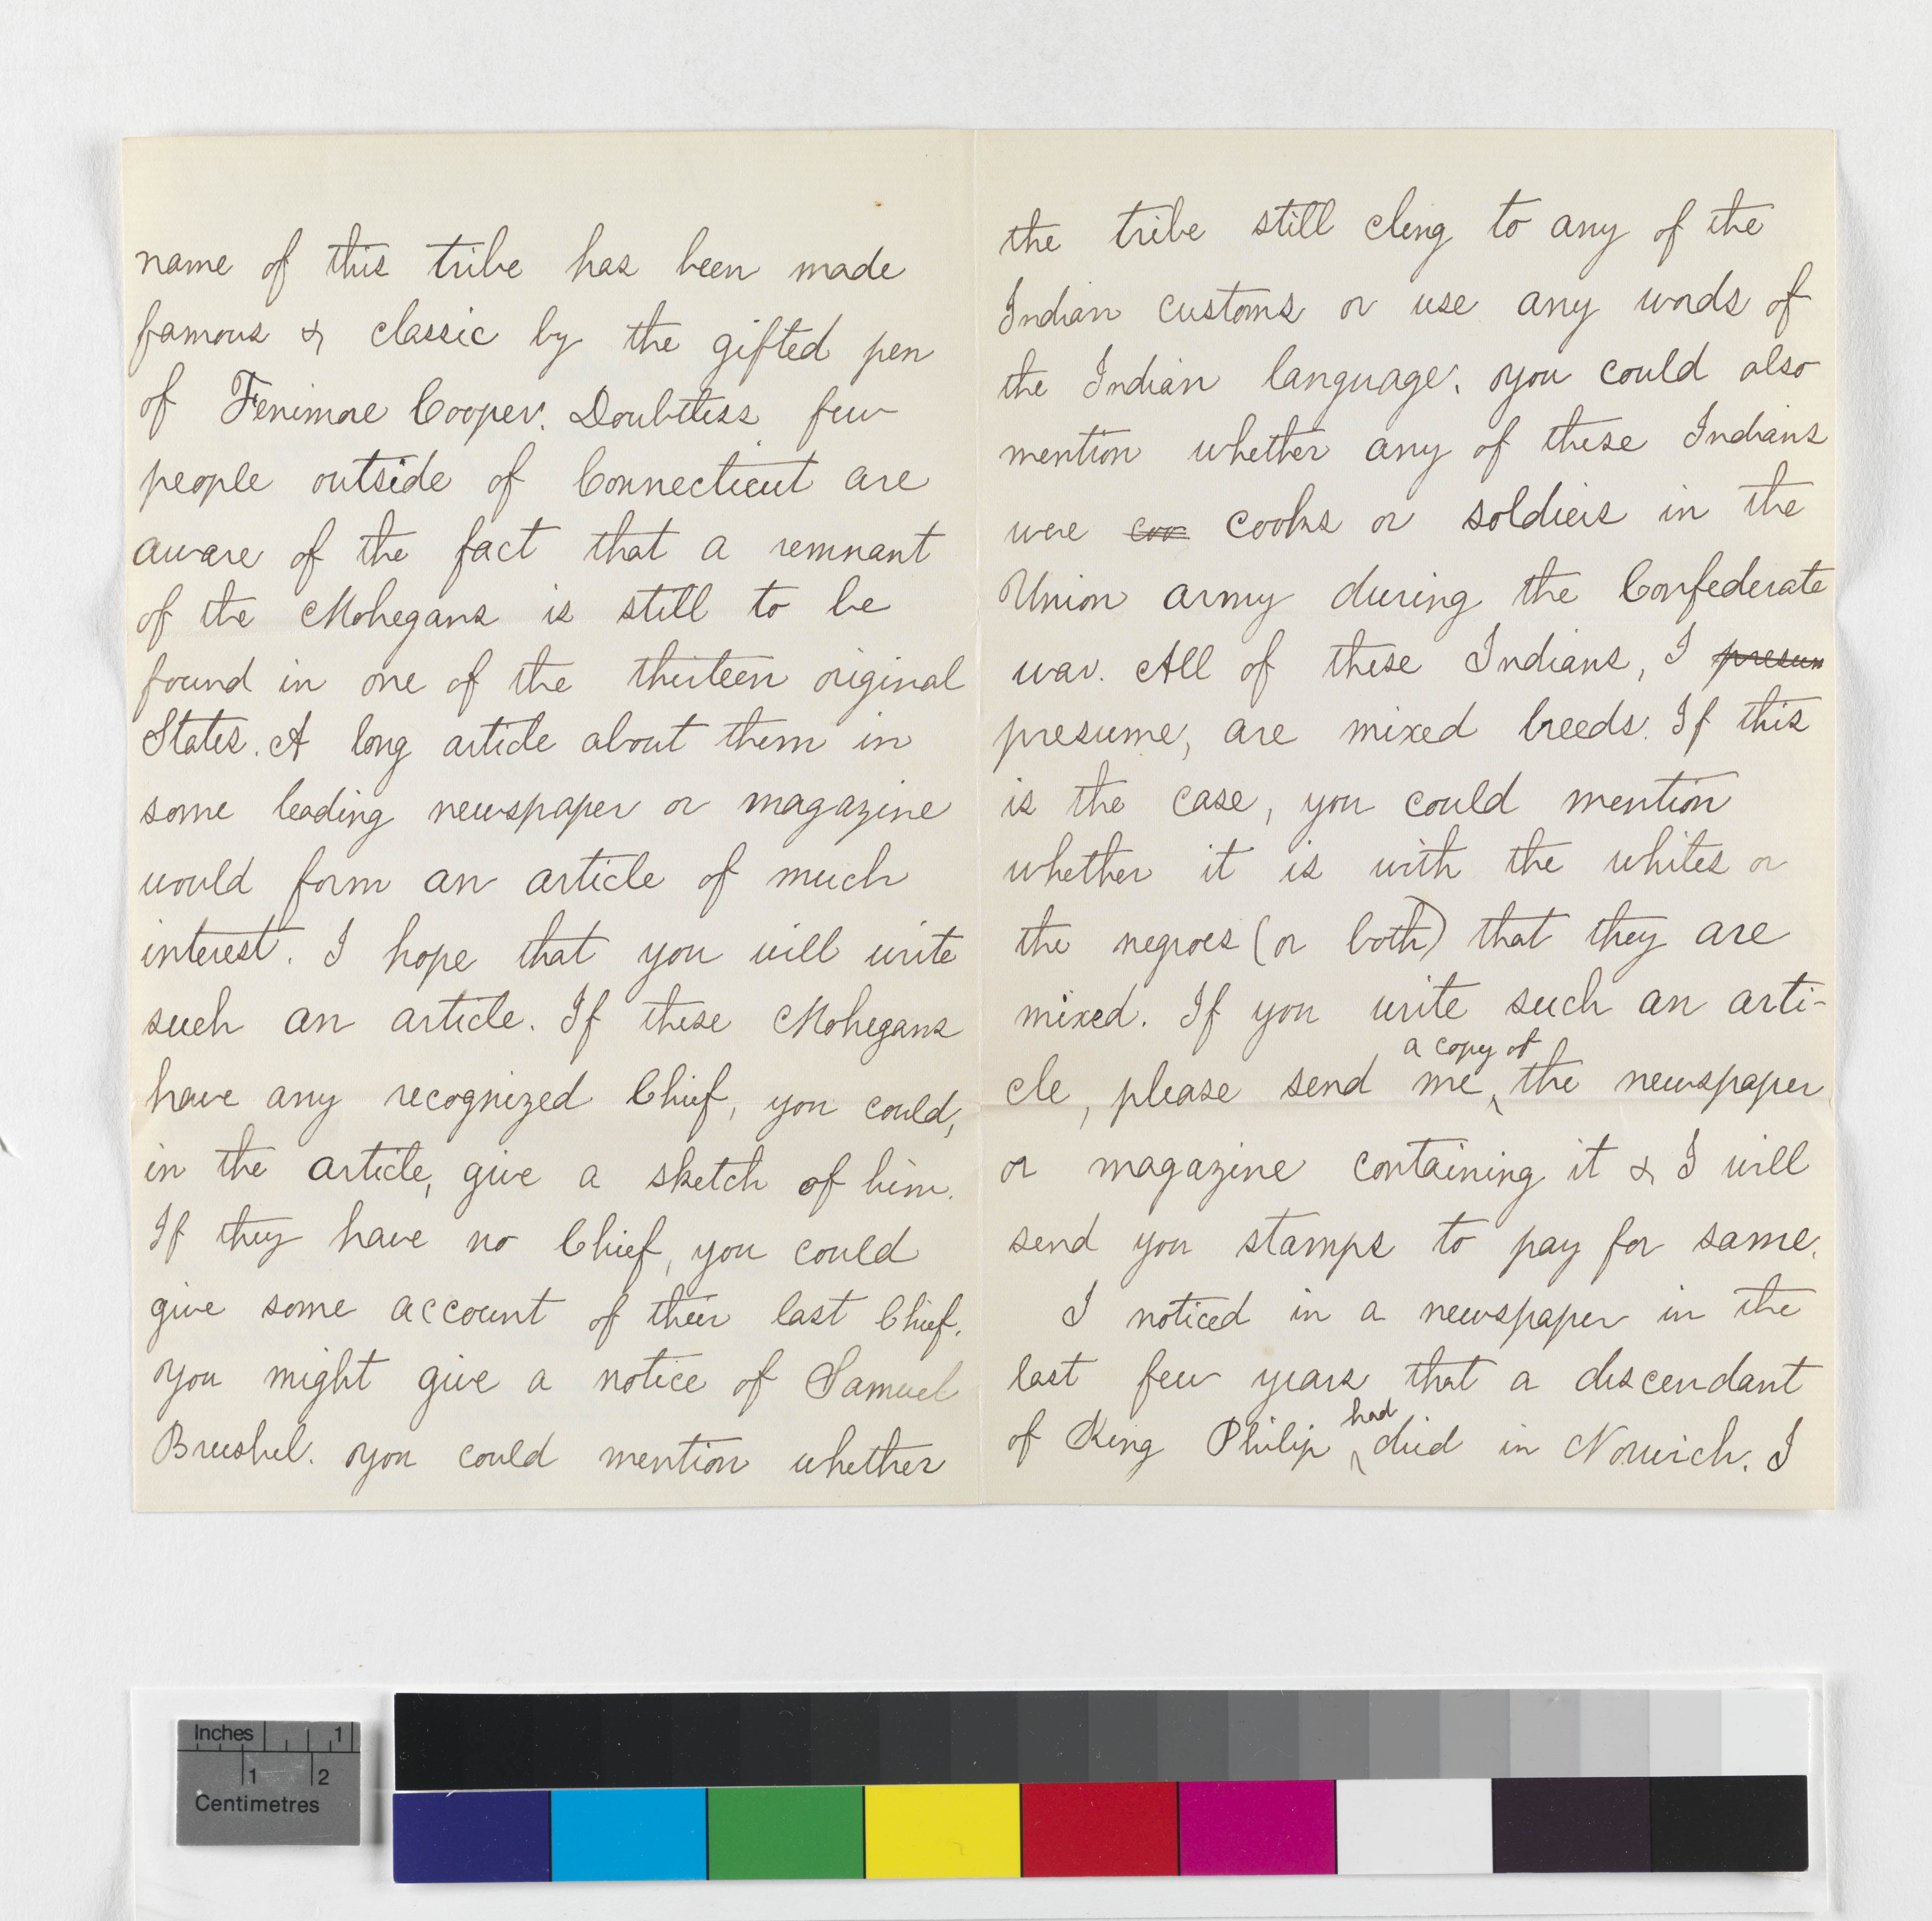 name of this tribe has been made
famous & classic by the gifted pen
of Fenimore Cooper. Doubtless few
people outside of Connecticut are
aware of the fact that a remnant
of the Mohegans is still to be
found in one of the thirteen original
States. A long article about them in
some leading newspaper or magazine
would form an article of much
interest. I hope that you will write
such an article. If these Mohegans
have any recognized Chief, you could,
in the article, give a sketch of him.
If they have no Chief, you could
give some account of their last Chief.
You might give a notice of Samuel
Brushel. You could mention whether
the tribe still cling to any of the
Indian customs or use any words of
the Indian language. You could also
mention whether any of these Indians
were coo cooks or soldiers in the
Union army during the Confederate
war. All of these Indians, I presum
presume, are mixed breeds. If this
is the case, you could mention
whether it is with the whites or
the negroes (or both) that they are
mixed. If you write such an arti-
a copy of
cle, please send me, the newspaper
or magazine containing it & I will
send you stamps to pay for same.
I noticed in a newspaper in the
last few years that a descendant
had
of King Philip died in Norwich. I
Inches 1
1 2
Centimetres